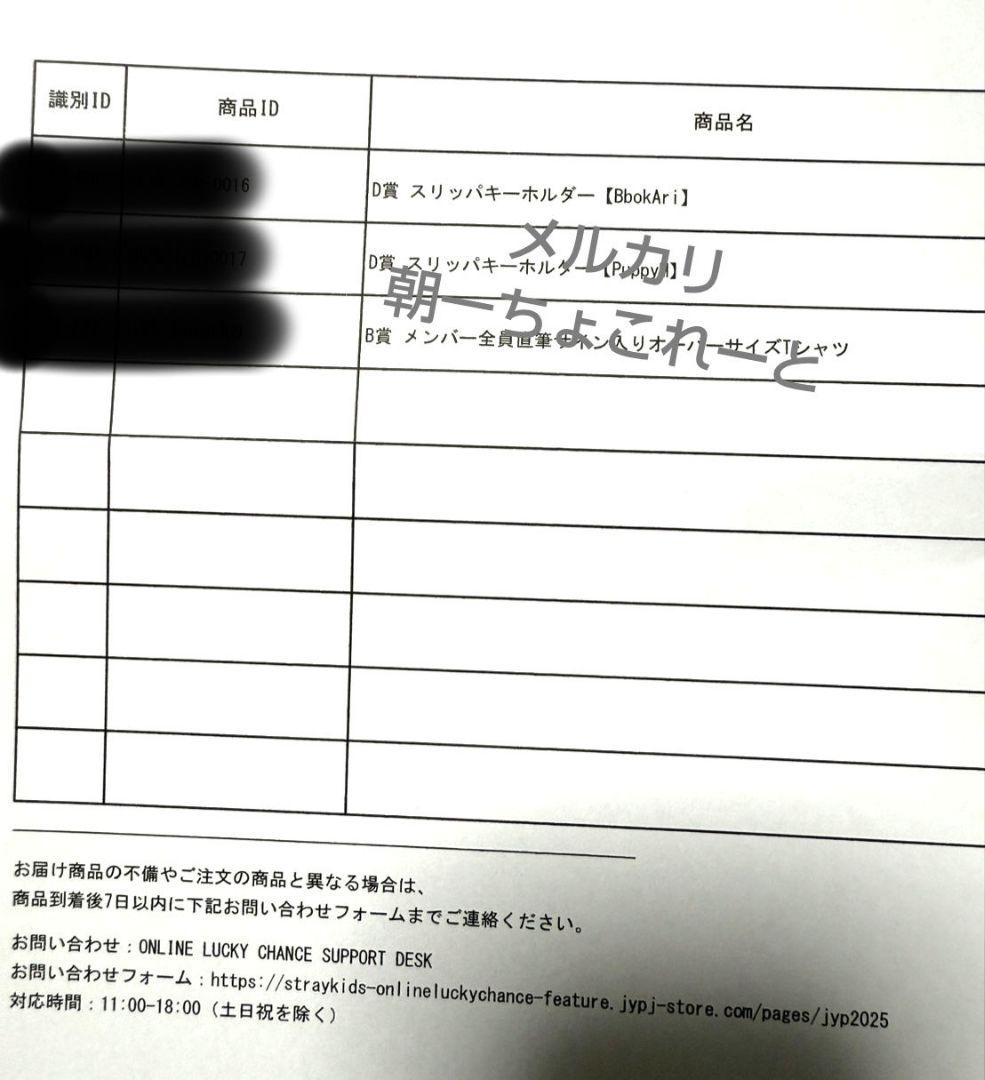 識別ID 商品ID 商品名
0016 D賞 スリッパキーホルダー【BbokAri】
0017 D賞 スリッパキーホルダー【PuppyM】
B賞 メンバー全員直筆サイン入りオーバーサイズTシャツ
メルカリ
朝一ちょこれーと
お届け商品の不備やご注文の商品と異なる場合は、
商品到着後7日以内に下記お問い合わせフォームまでご連絡ください。
お問い合わせ：ONLINE LUCKY CHANCE SUPPORT DESK
お問い合わせフォーム：https://straykids-onlineluckychance-feature.jypj-store.com/pages/jyp2025
対応時間：11:00-18:00（土日祝を除く）